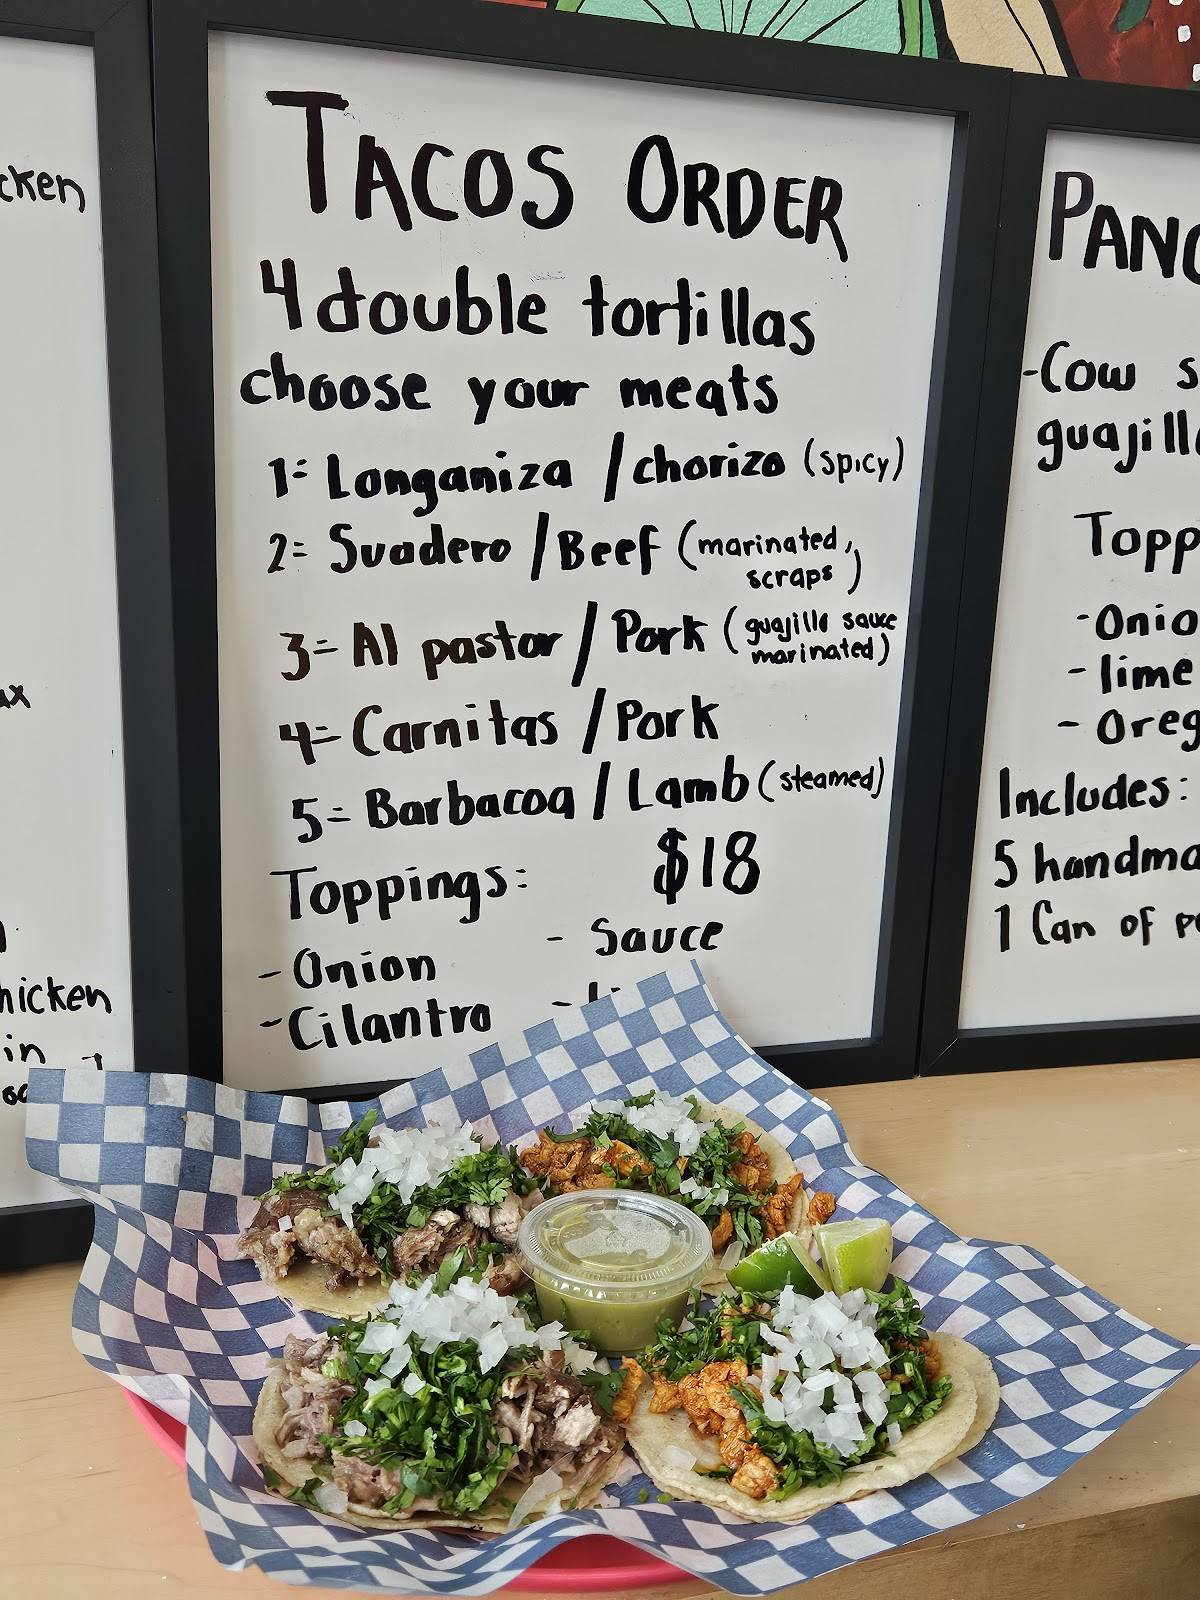 TACOS ORDER
4 double tortillas
choose your meats
1= Longaniza / chorizo (spicy)
2= Suadero / Beef (marinated, scraps)
3= Al pastor / Pork (guajillo sauce marinated)
4= Carnitas / Pork
5= Barbacoa / Lamb (steamed)
$18
Toppings:
- Onion
- Sauce
- Cilantro
-Cow
Topp
-Onio
- lime
- Oreg
Includes:
5 handma
1 Can of
hicken
in